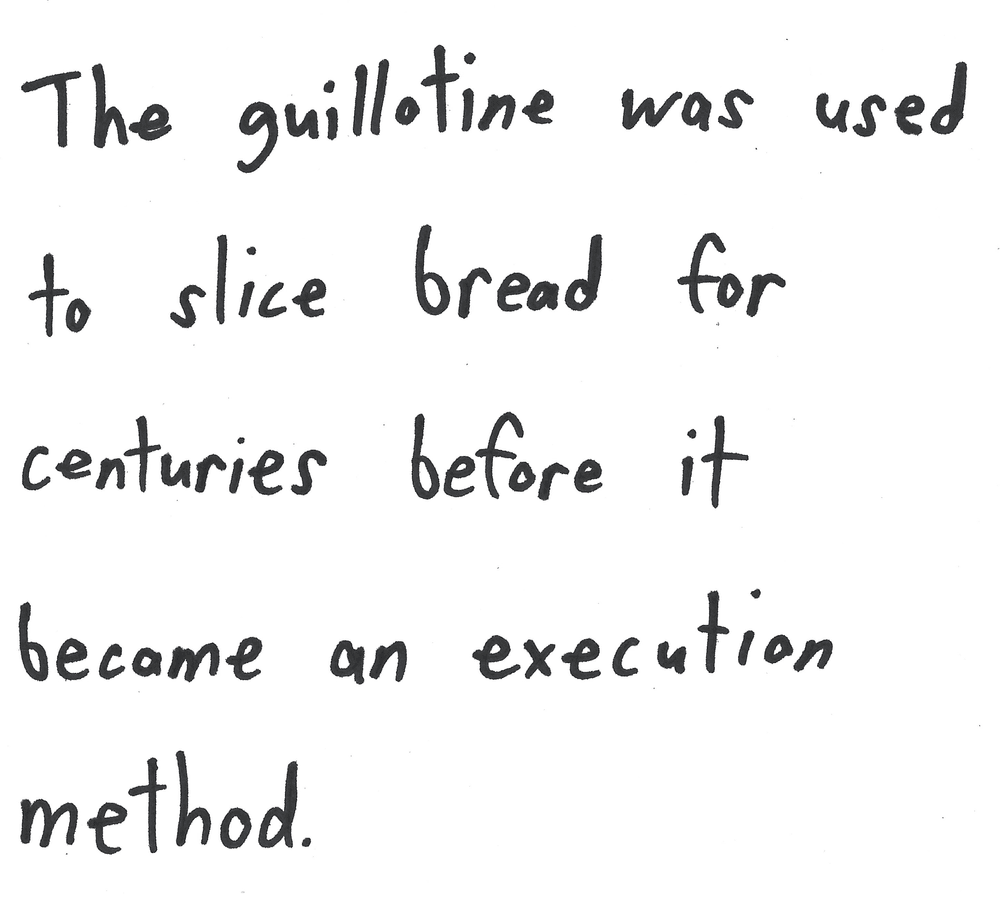 The guillotine was used
to slice bread for
centuries before it
became an execution
method.